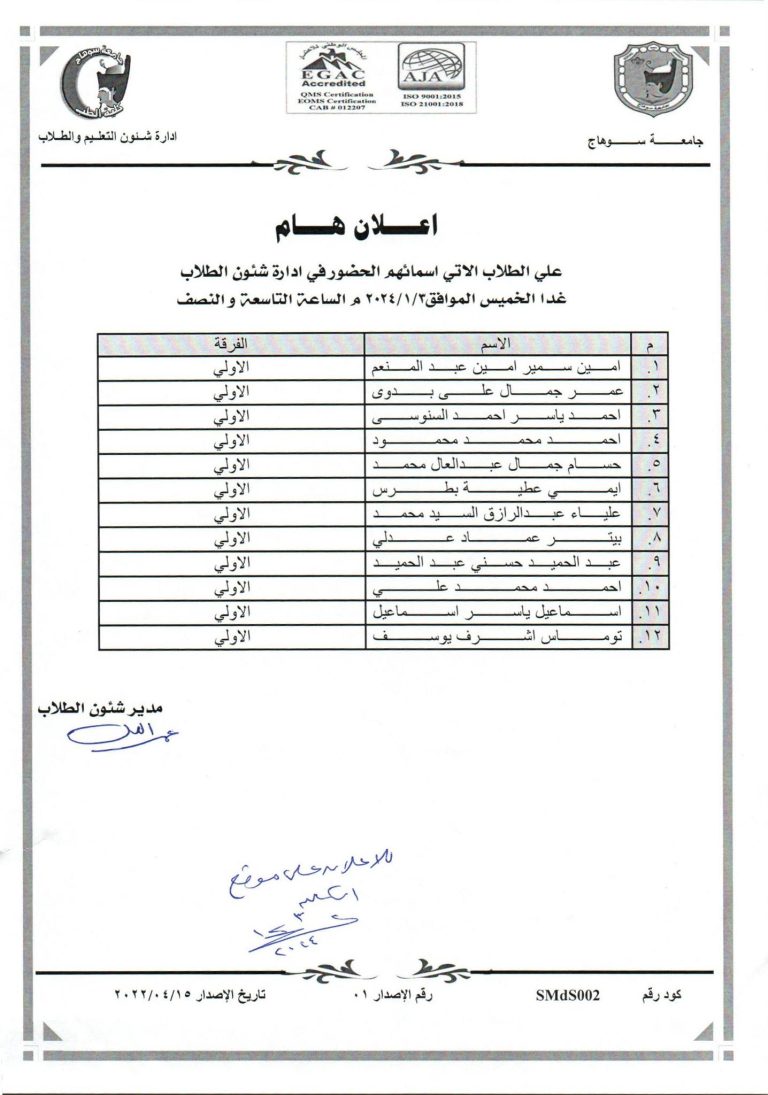 جامعة سوهاج
كلية الطب
المجلس الوطني للاعتماد
EGAC
Accredited
QMS Certification
EOMS Certification
CAB # 012207
AJA
ISO 9001:2015
ISO 21001:2018
جامعة سوهاج
ادارة شئون التعليم والطلاب
اعلان هام
علي الطلاب الاتي اسمائهم الحضور في ادارة شئون الطلاب
غدا الخميس الموافق ٢٠٢٤/١/٣ م الساعة التاسعة والنصف
م الاسم الفرقة
١. امين سمير امين عبد المنعم الاولي
٢. عمر جمال على بدوى الاولي
٣. احمد ياسر احمد السنوسى الاولي
٤. احمد محمد محمود الاولي
٥. حسام جمال عبدالعال محمد الاولي
٦. ايمي عطية بطرس الاولي
٧. علياء عبدالرازق السيد محمد الاولي
٨. بيتر عماد عدلي الاولي
٩. عبد الحميد حسني عبد الحميد الاولي
١٠. احمد محمد علي الاولي
١١. اسماعيل ياسر اسماعيل الاولي
١٢. توماس اشرف يوسف الاولي
مدير شئون الطلاب
للاعلان على موقع
الكلية
٢٠٢٤
كود رقم SMdS002 رقم الإصدار ٠١ تاريخ الإصدار ٢٠٢٢/٠٤/١٥